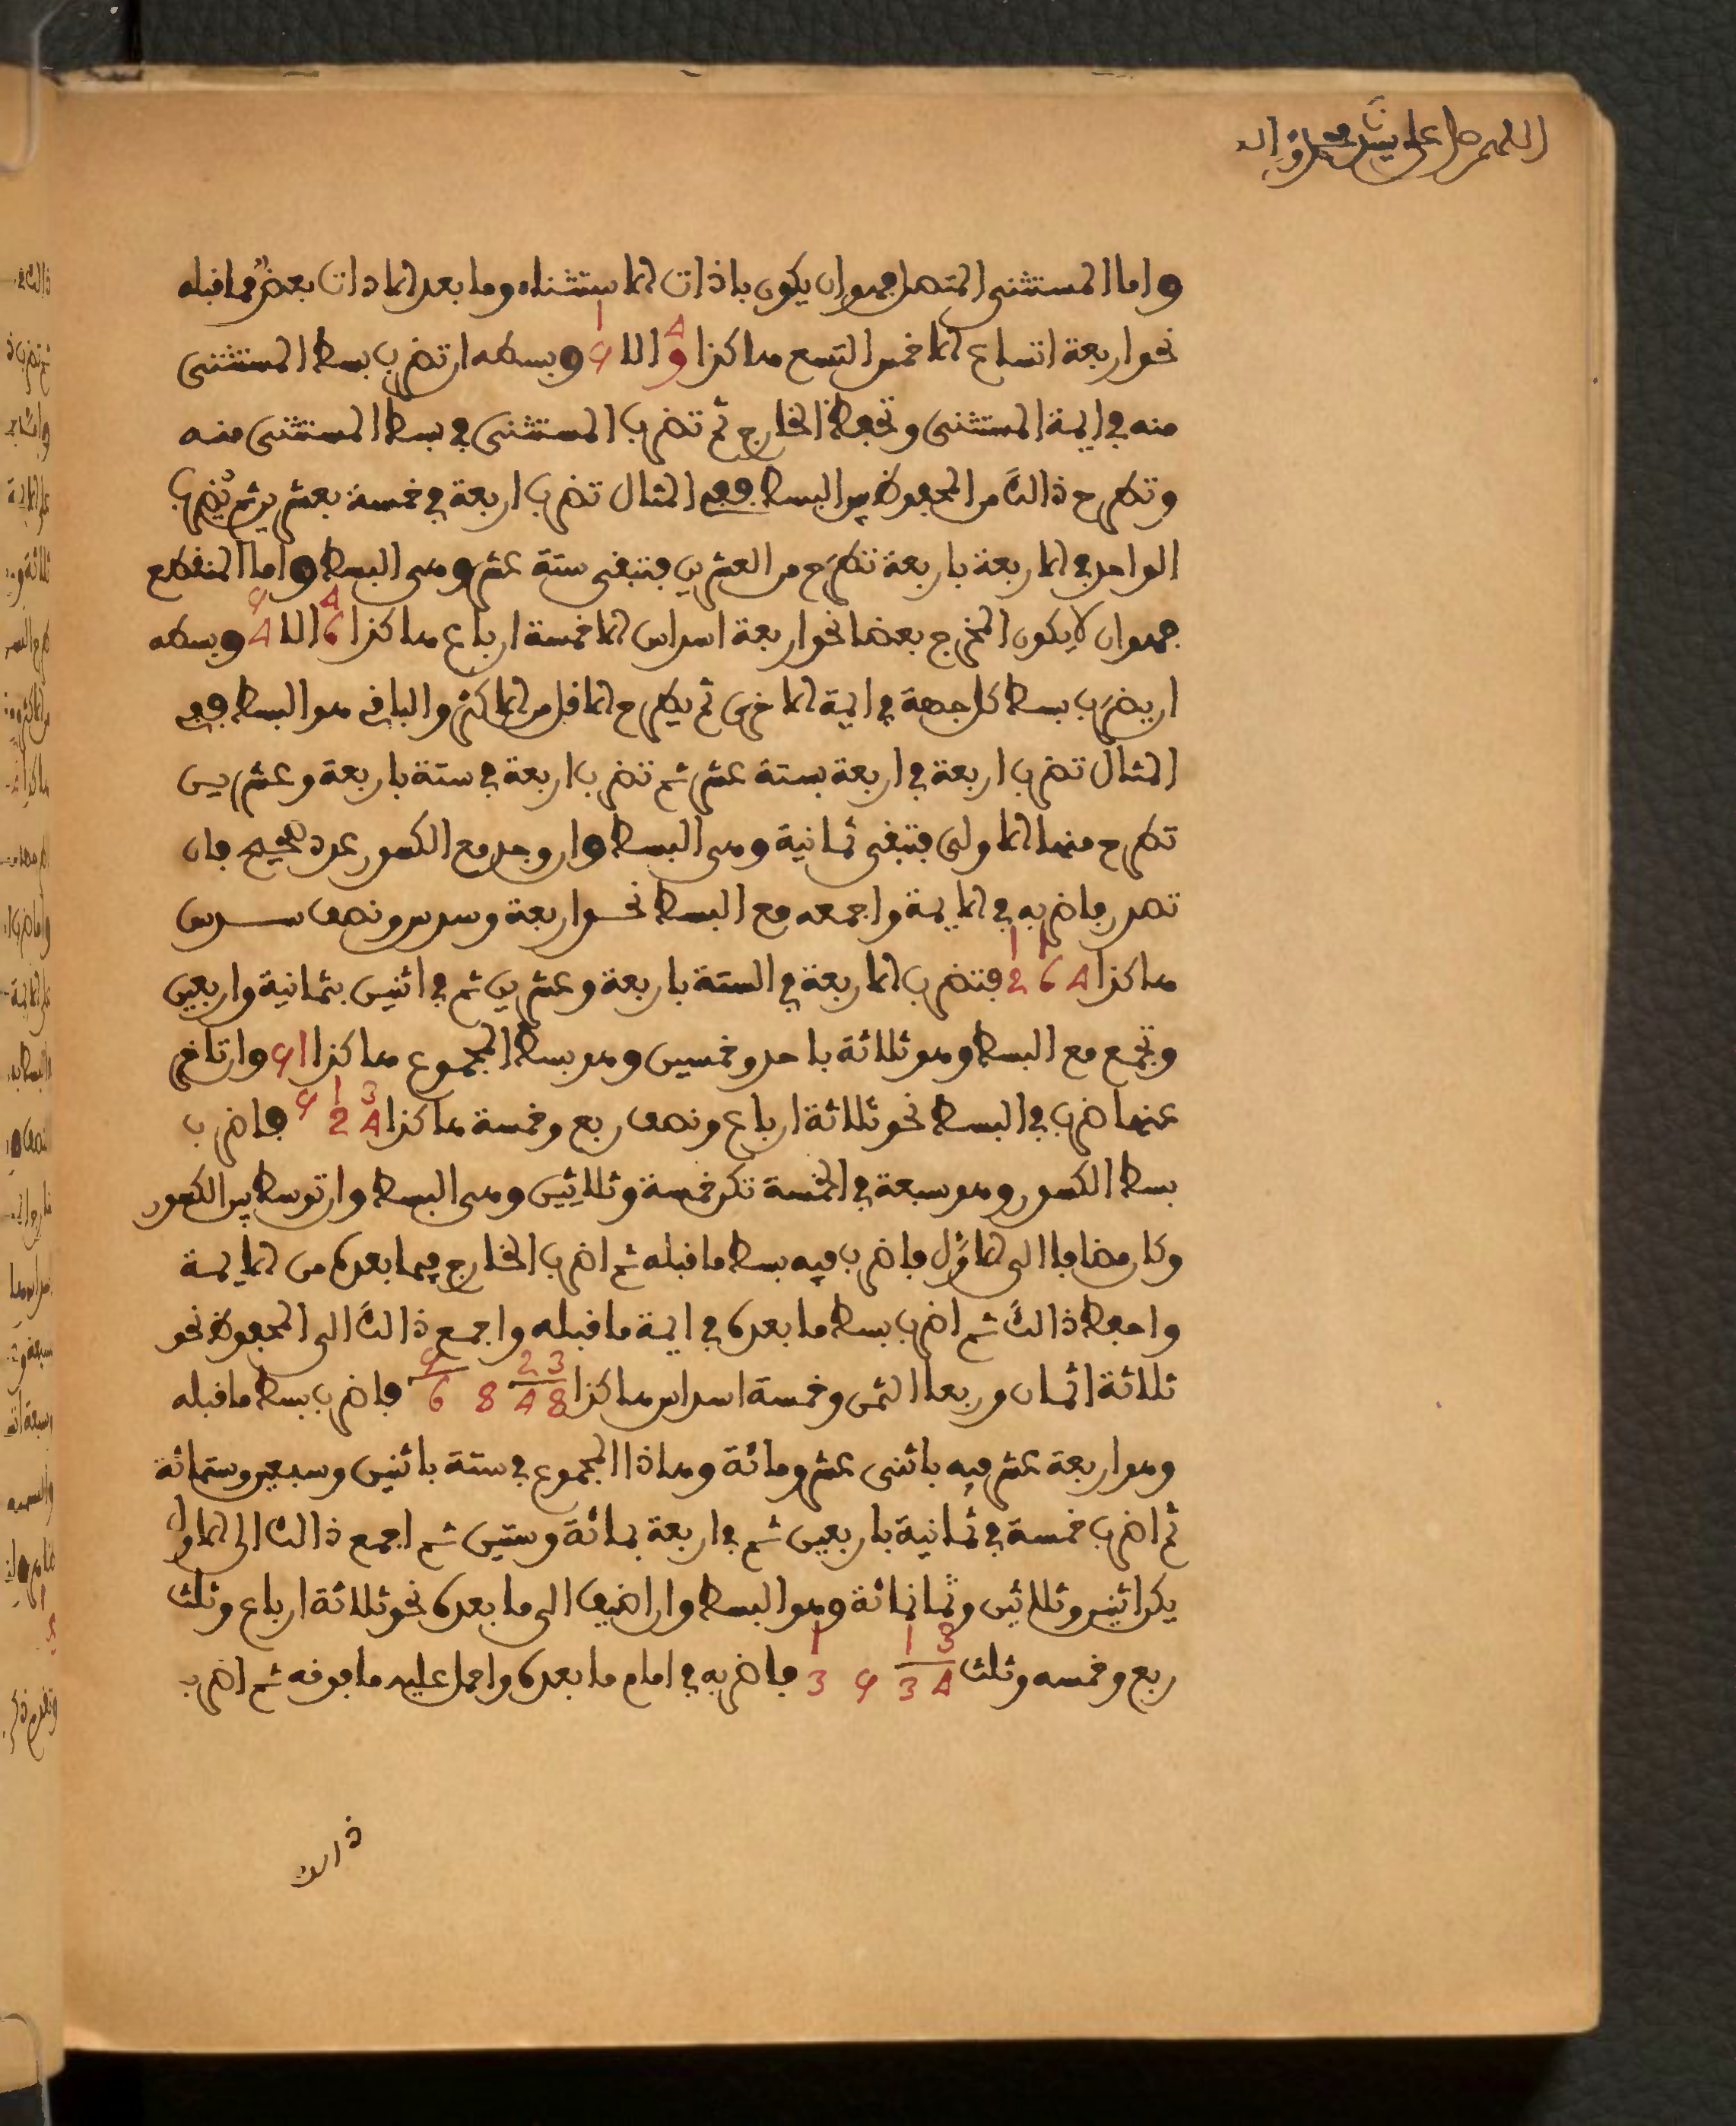 اللهم صل على سيدنا محمد واله
واما المستثنى المتصل فهو ان يكون باذات الاستثناء وما بعد الاذات بعض مما قبله
نحو اربعة اتساع الا خمس التسع هاكذا 4/9 الا 1/5 وبسطه ان تضرب بسط المستثنى
منه في ايمة المستثنى وتحفظ الخارج ثم تضرب المستثنى في بسط المستثنى منه
وتطرح ذالك من المحفوظ يبن البسط ففي المثال تضرب اربعة في خمسة بعشرين ثم تضرب
الواحد في الاربعة باربعة تطرح من العشرين فتبقى ستة عشر وهى البسط واما المنقطع
فهو ان لا يكون المخرج بعضا نحو اربعة اسداس الا خمسة ارباع هاكذا 4/6 الا 5/4 وبسطه
ان يضرب بسط كل جهة في ايمة الاخرى ثم يطرح الاقل من الاكثر والباقى هو البسط ففي
المثال تضرب اربعة في اربعة بستة عشر ثم تضرب اربعة في ستة باربعة وعشرين
تطرح منها الاولى فتبقى ثمانية وهى البسط وان وجد مع الكسور عدد صحيح فان
تصدر فاضربه في الايمة واجمعه مع البسط نحو اربعة وسدس ونصف سدس
هاكذا 4 1/6 1/2 فتضرب الاربعة في الستة باربعة وعشرين ثم في اثنين بثمانية واربعين
وتجمع مع البسط وهو ثلاثة باحد وخمسين وهو بسط المجموع هاكذا 51 وان تاخر
عنها ضرب في البسط نحو ثلاثة ارباع ونصف ربع وخمسة هاكذا 3/4 1/2 5 فاضرب
بسط الكسور وهو سبعة في الخمسة تكن خمسة وثلاثين وهى البسط وان توسط بين الكسور
وكان مضافا الى الاول فاضرب فيه بسط ما قبله ثم اضرب الخارج فيما بعده من الايمة
واحفظ ذالك ثم اضرب بسط ما بعده في ايمة ما قبله واجمع ذالك الى المحفوظ نحو
ثلاثة اثمان وربعا الثمن وخمسة اسداس هاكذا 3/8 2/4 8 5/6 فاضرب بسط ما قبله
وهو اربعة عشر فيه باثنى عشر ومائة وهاذا المجموع في ستة باثنين وسبعين وستمائة
ثم اضرب خمسة في ثمانية باربعين ثم في اربعة بمائة وستين ثم اجمع ذالك الى الاول
يكن اثنين وثلاثين وثمانمائة وهو البسط وان اضيف الى ما بعده نحو ثلاثة ارباع وثلث
ربع وخمسه وثلث 3/4 1/3 5 1/3 فاضربه في امام ما بعده واحمل عليه ما فوقه ثم اضرب
ذالك